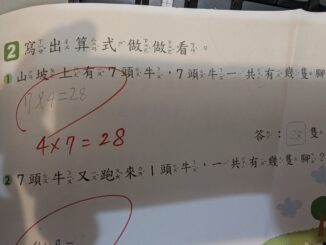 2 寫出算式做做看。
1 山坡上有7頭牛，7頭牛一共有幾隻腳
7×4=28
4×7=28
答：28隻
2 7頭牛又跑來1頭牛，一共有幾隻腳？